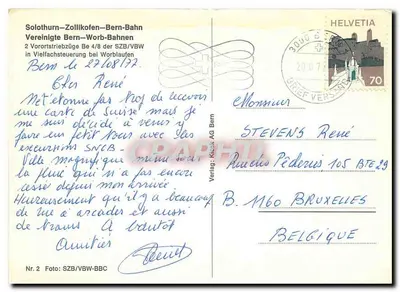 Solothurn—Zollikofen—Bern-Bahn
Vereinigte Bern—Worb-Bahnen
2 Vorortstriebzüge Be 4/8 der SZB/VBW
in Vielfachsteuerung bei Worblaufen
Bern le 27/08/77
Cher René
Met'étonne pas trop de recevoir
une carte de Suisse mais je
me suis décidé à venir y
faire un petit tour avec les
excursions SNCB.
Ville magnifique même sous
la pluie qui n'a pas encore
cessé depuis mon arrivée
Heureusement qu'il y a beaucoup
de rue à arcades et aussi
de trams À bientôt
Amitiés
Nr. 2 Foto: SZB/VBW-BBC
Verlag: AG Bern
HELVETIA
70
3000
BRIEFVERSAND
Monsieur
STEVENS René
105 BTE 29
B. 1160 BRUXELLES
BELGIQUE